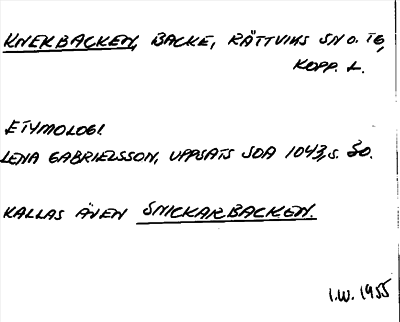 KNEKBACKEN, BACKE, RÄTTVIKS SN O. TG,
KOPP. L.
ETYMOLOGI
LENA GABRIELSSON, UPPSATS SOA 1043, S. 30.
KALLAS ÄVEN SNICKARBACKEN.
I.W. 1955